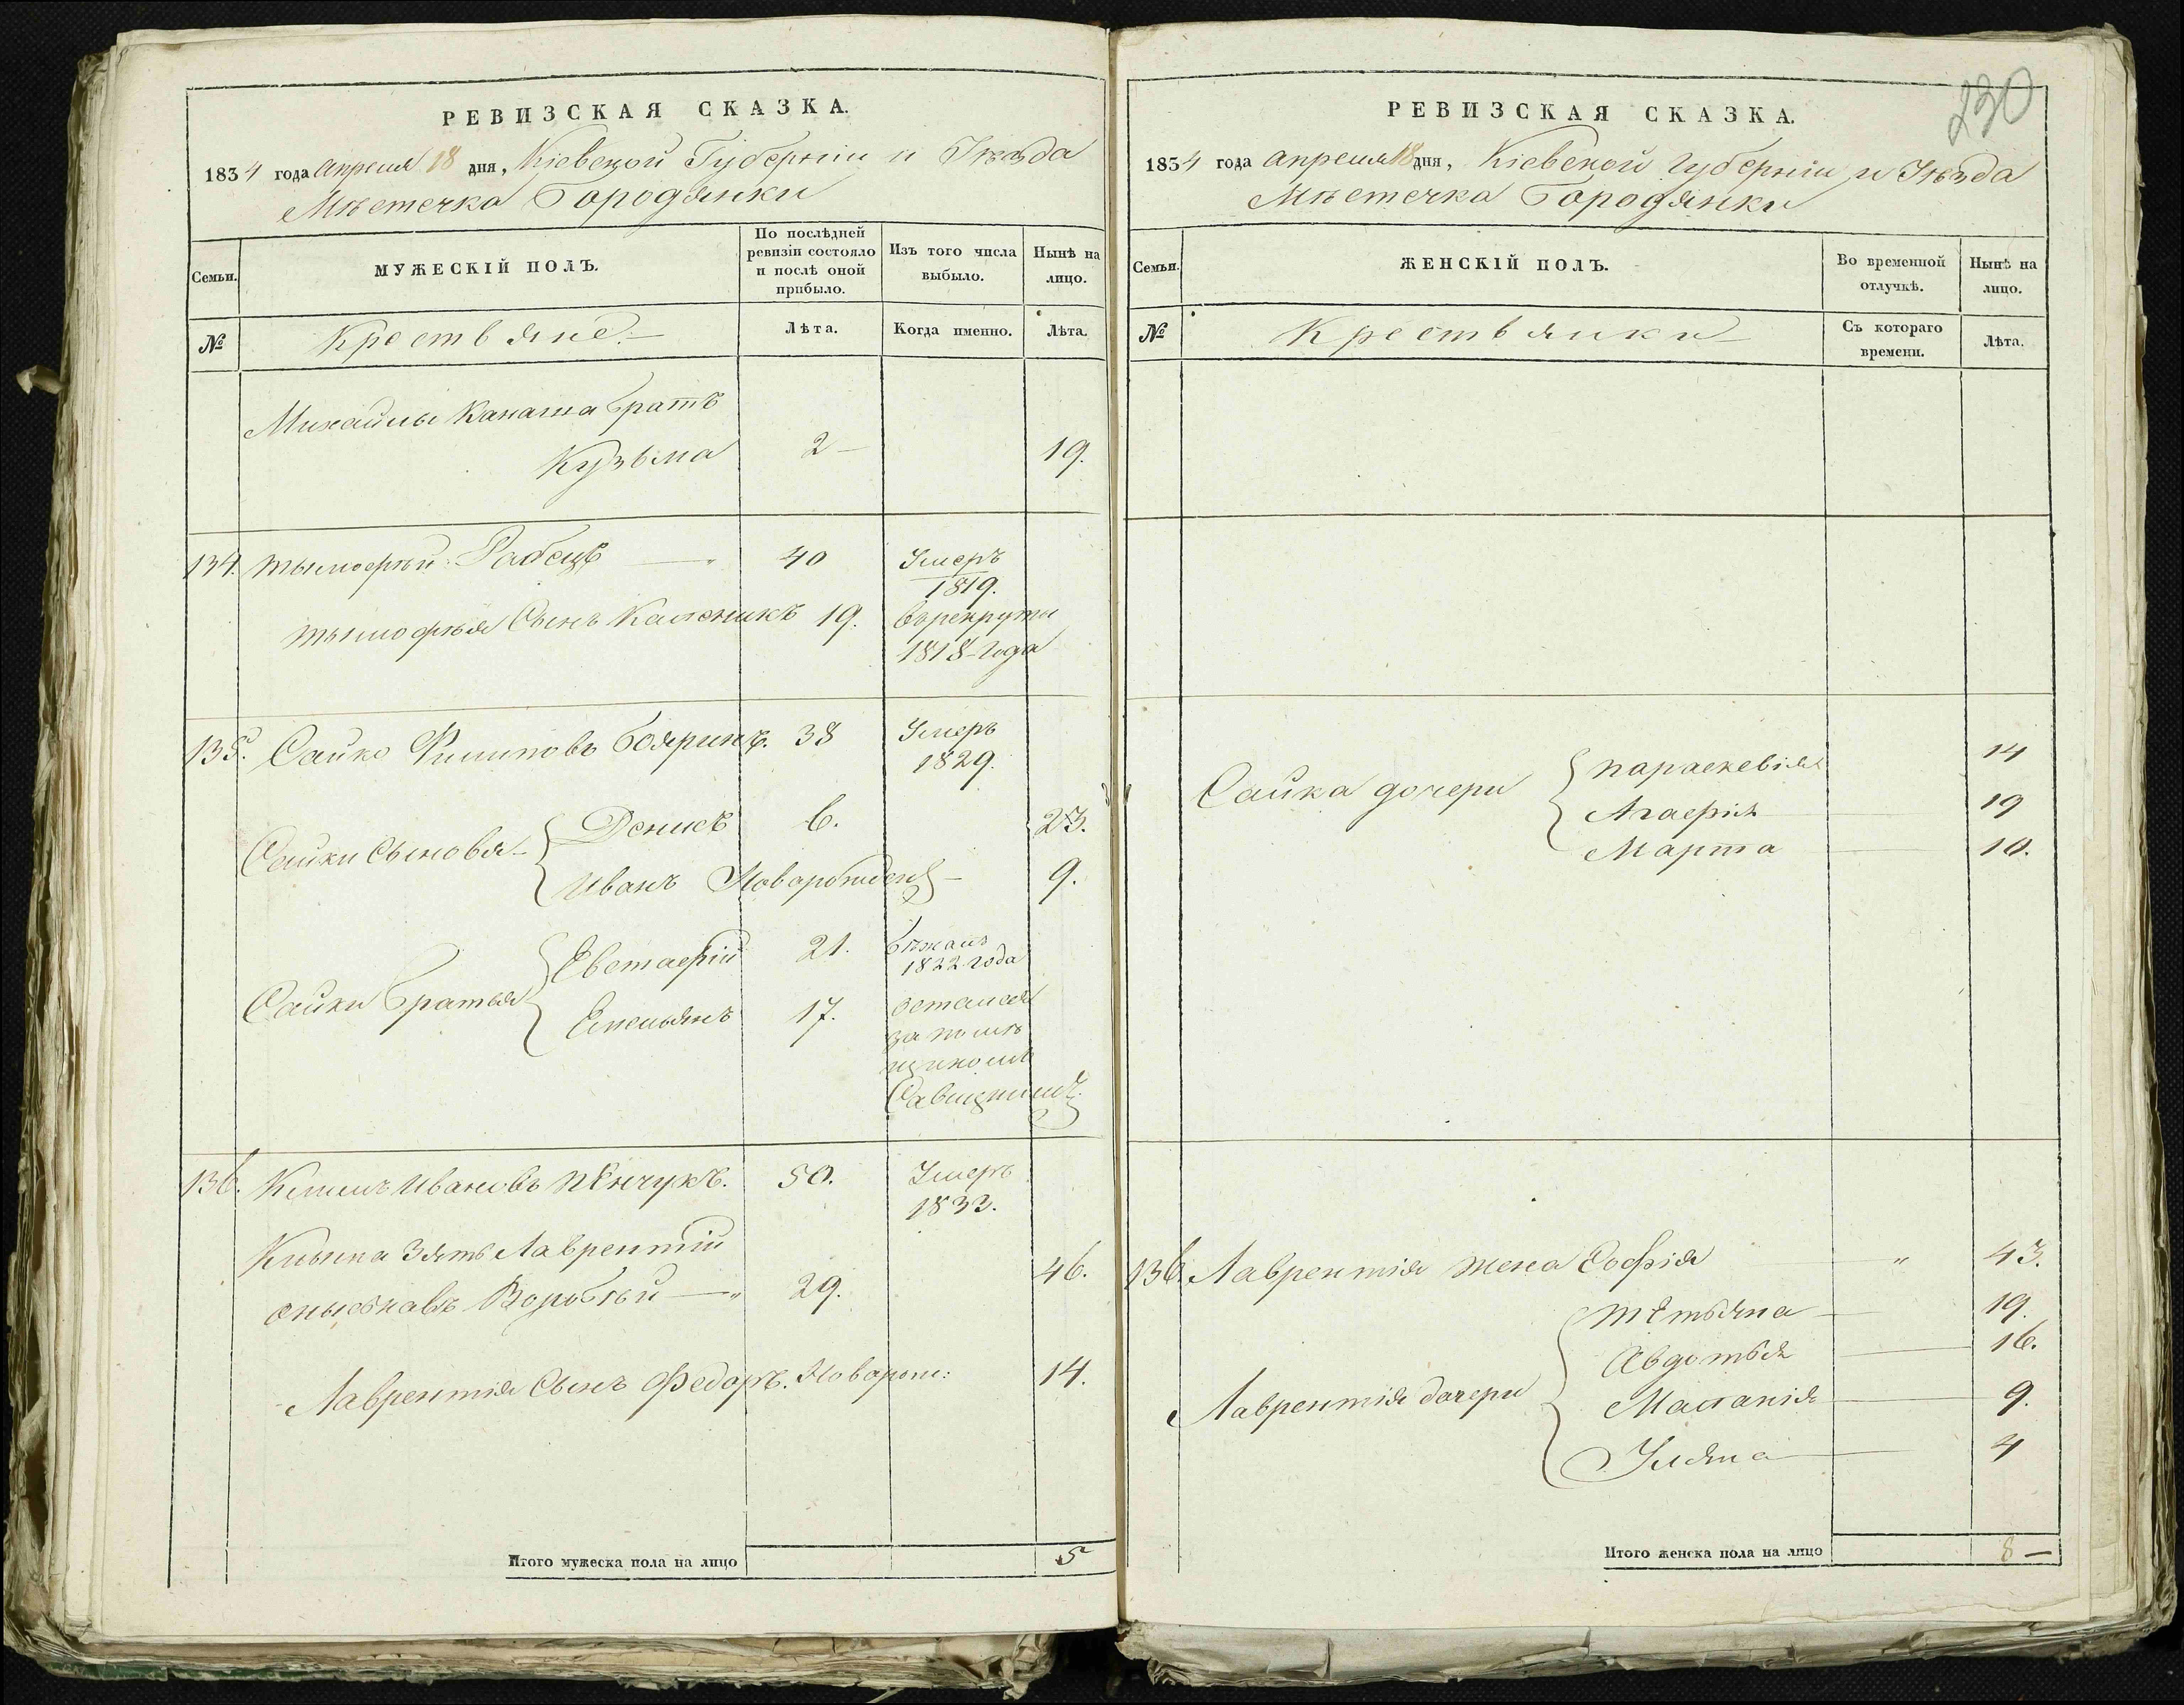 РЕВИЗСКАЯ СКАЗКА.
1834 года апреля 18 дня, Кіевской Губерніи и Уѣзда
Мѣстечка Бородянки
Семьи.
МУЖЕСКІЙ ПОЛЪ.
По послѣдней ревизіи состояло и послѣ оной прибыло.
Изъ того числа выбыло.
Нынѣ на лицо.
№
Крестьяне.
Лѣта.
Когда именно.
Лѣта.
Михайлы Канаша братъ
Кузьма 2 — 19.
134. Тымофѣй Рабецъ — 40 Умеръ
1819.
Тымофѣя Сынъ Каленикъ 19. въ рекруты
1818 года
135. Сайко Филиповъ Бояринъ. 38 Умеръ
1829.
Сайки Сыновья
Денисъ 6. 23.
Иванъ Новорожден — 9.
Сайки братья
Евстафій 21. бѣжалъ
1822 года
Емельянъ 17. остался
за помѣ
щикомъ
Савицкимъ.
136. Климъ Ивановъ 50. Умеръ
1833.
Клыма Зять Лаврентій
Воробѣй — 29. 46.
Лаврентія Сынъ Федоръ. Новарож: 14.
Итого мужеска пола на лицо 5
230
РЕВИЗСКАЯ СКАЗКА.
1834 года апреля 18 дня, Кіевской Губерніи и Уѣзда
Мѣстечка Бородянки
Семьи.
ЖЕНСКІЙ ПОЛЪ.
Во временной отлучкѣ.
Нынѣ на лицо.
№
Крестьянки
Съ котораго времени.
Лѣта.
Сайка дочери
Параскевія 14
Агафія 19
Марта 10.
136. Лаврентія жена Софія " 43.
Лаврентія дочери
Тетьяна 19.
Авдотья 16.
Маланія 9.
Уляна 4
Итого женска пола на лицо 8 —